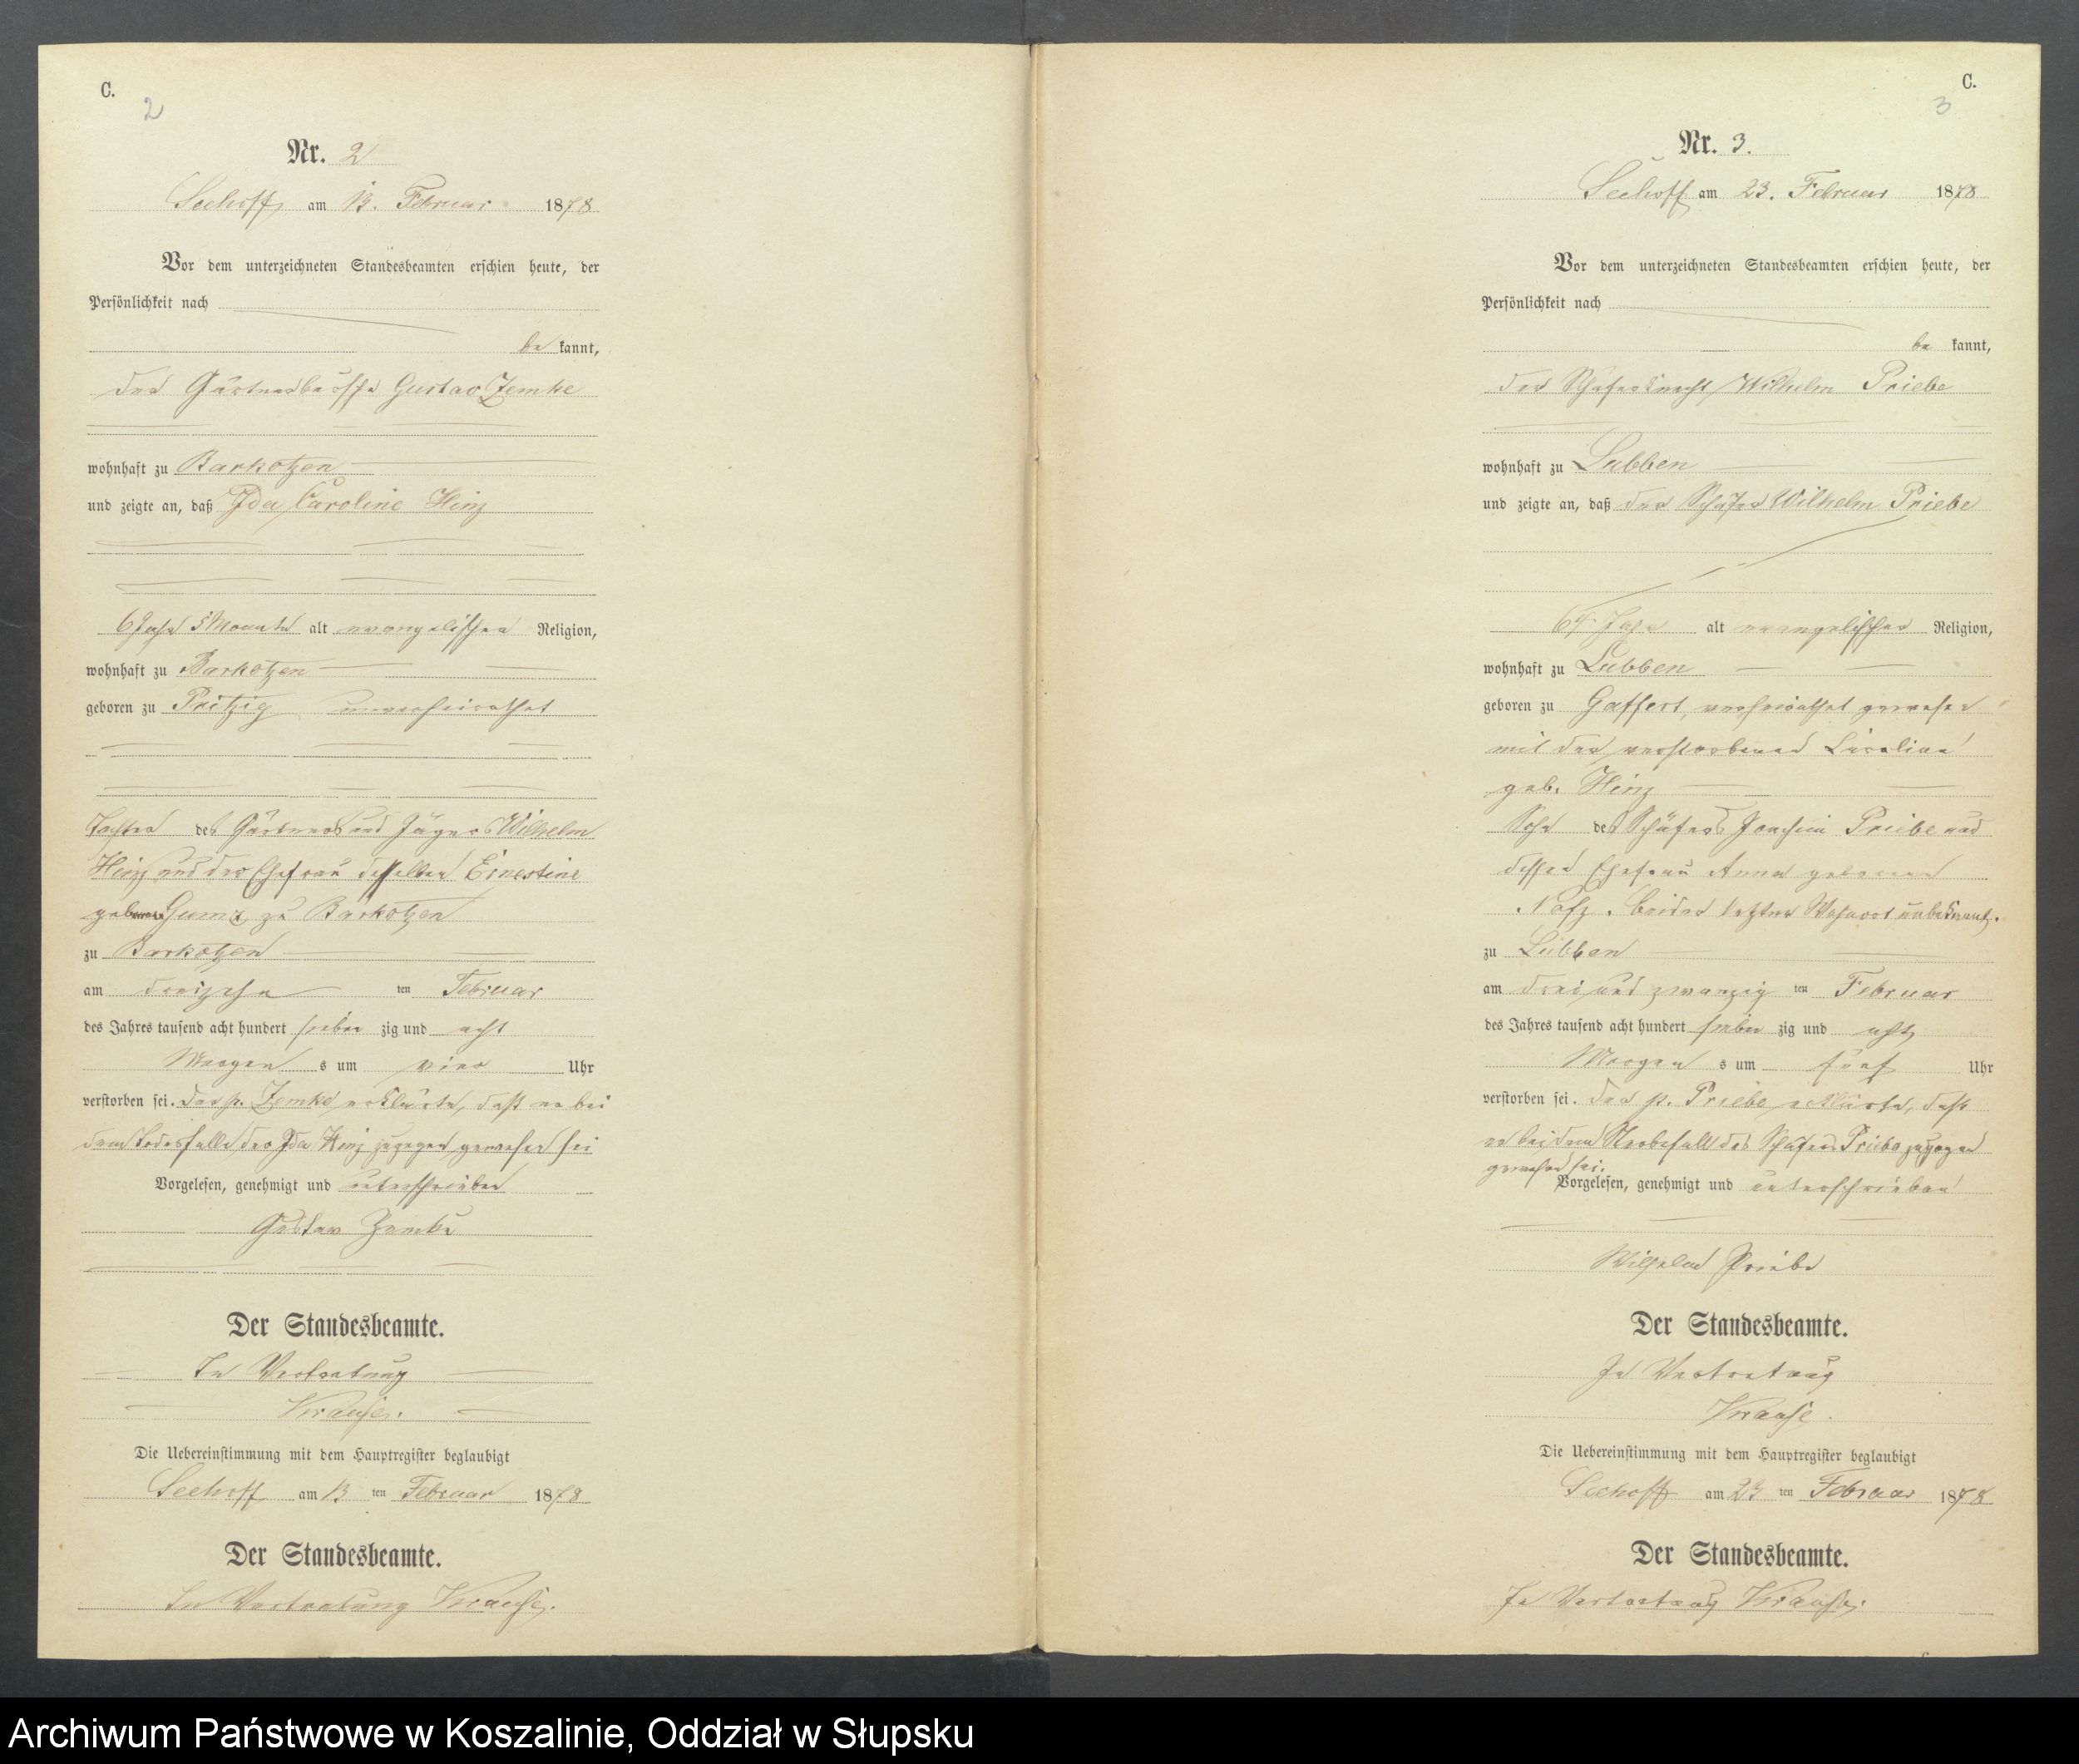 C.
2
Nr. 2
Seehoff am 13. Februar 1878
Vor dem unterzeichneten Standesbeamten erschien heute, der
Persönlichkeit nach
be kannt,
der Gärtnerbursche Gustav Zemke
wohnhaft zu Barkotzen
und zeigte an, daß Ida Caroline Hinz
6 Jahr 5 Monate alt evangelischer Religion,
wohnhaft zu Barkotzen
geboren zu Pritzig unverheirathet
Tochter des Gärtners und Jägers Wilhelm
Hinz und der Ehefrau desselben Ernestine
geborene Gumz zu Barkotzen
zu Barkotzen
am dreizehn ten Februar
des Jahres tausend acht hundert sieben zig und acht
Morgen s um vier Uhr
verstorben sei. Der p. Zemke erklärte, daß er bei
dem Todesfalle der Ida Hinz zugegen gewesen sei
Vorgelesen, genehmigt und unterschrieben
Gustav Zemke
Der Standesbeamte.
In Vertretung
Krause.
Die Uebereinstimmung mit dem Hauptregister beglaubigt
Seehoff am 13 ten Februar 1878
Der Standesbeamte.
In Vertretung Krause.
C.
3
Nr. 3.
Seehoff am 23. Februar 1878
Vor dem unterzeichneten Standesbeamten erschien heute, der
Persönlichkeit nach
be kannt,
der Schäferknecht Wilhelm Priebe
wohnhaft zu Lubben
und zeigte an, daß der Schäfer Wilhelm Priebe
Jahr alt evangelischer Religion,
wohnhaft zu Lubben
geboren zu Gaffert, verheirathet gewesen
mit der verstorbenen Caroline
geb. Hinz
Sohn des Schäfers Joachim Priebe und
dessen Ehefrau Anna geborene
beider letzter Wohnort unbekannt.
zu Lübben
am drei und zwanzig ten Februar
des Jahres tausend acht hundert sieben zig und acht
Morgen s um fünf Uhr
verstorben sei. Der p. Priebe erklärte, daß
er bei dem Sterbefall des Schäfers Priebe zugegen
gewesen sei.
Vorgelesen, genehmigt und unterschrieben
Wilhelm Priebe
Der Standesbeamte.
In Vertretung
Krause.
Die Uebereinstimmung mit dem Hauptregister beglaubigt
Seehoff am 23 ten Februar 1878
Der Standesbeamte.
In Vertretung Krause.
Archiwum Państwowe w Koszalinie, Oddział w Słupsku